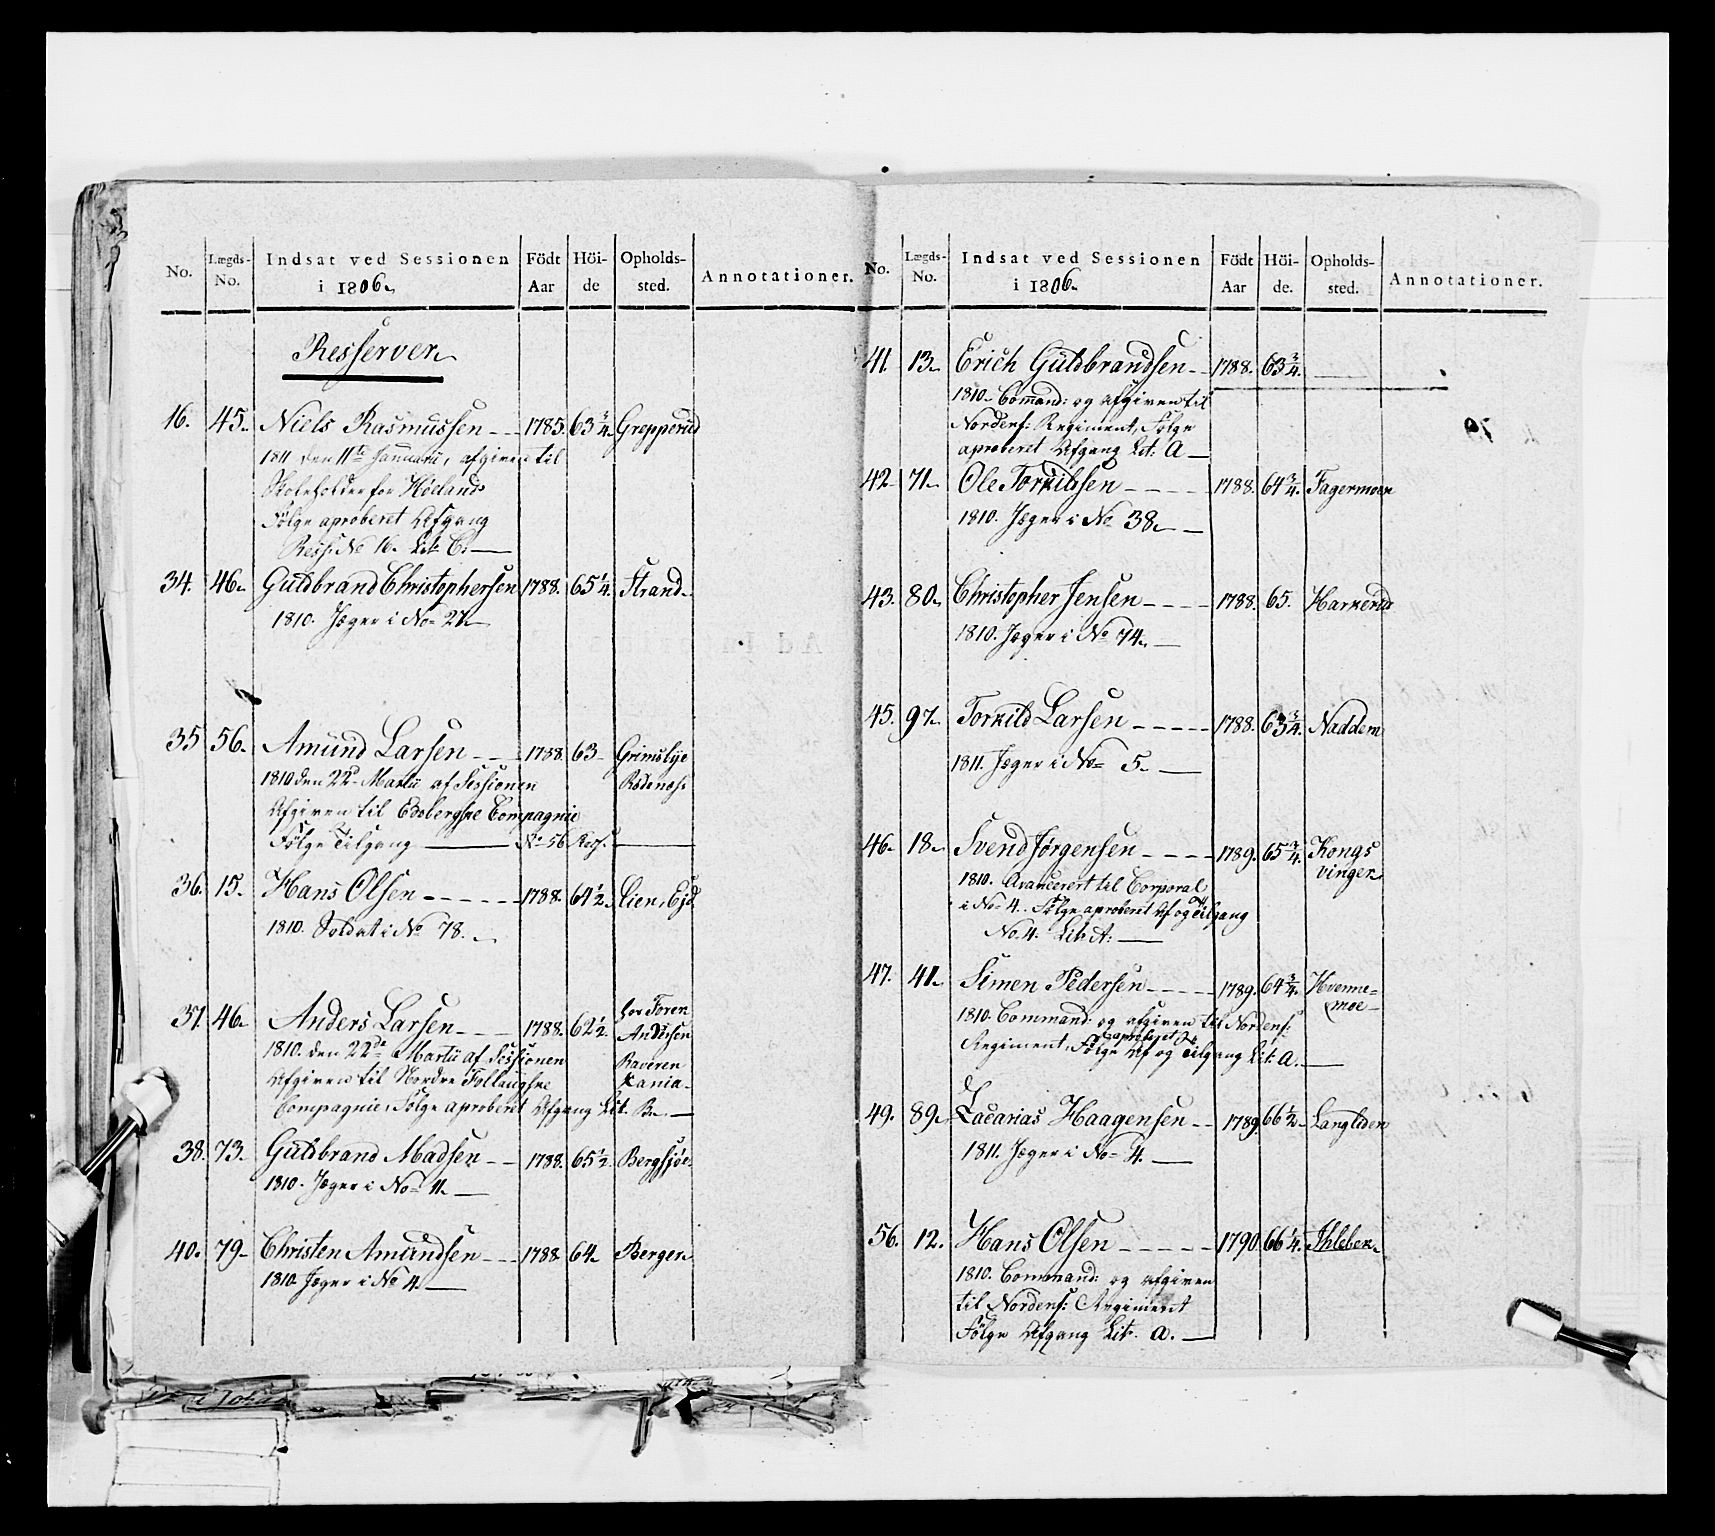 No. Lægds-No. Indsat ved Sessionen i 1806. Födt Aar Höi-de Opholds-sted. Annotationer.
Resserver
16. 45. Niels Rasmussen 1785. 63 3/4. Grepperud
1811 den 11te Januarii, afgiven til
Skoleholder for Höeland
Følge aproberet Afgang
Ress: No 16. Lit: C.
34. 46. Guldbrand Christophersen 1788. 65 1/4. Strand
1810. Jæger i No 27.
35 56. Amund Larsen 1788. 63 Grimslije
1810 den 22d Martii af Sessionen Rødenæs:
Afgiven til Edsbergske Compagnie
Følge Tilgang No 56 Ress.
36. 15. Hans Olsen 1788. 64 1/2. Lien, Ejd
1810. Soldat i No 78.
37. 46. Anders Larsen 1788. 62 1/2. hos Foren Andersen
1810. den 22de Martii af Sessionen
Afgiven til Nordre Follaugske
Compagnie, Følge aproberet Afgang Lit. B.
38. 73. Guldbrand Madsen 1788. 65 1/2. Bergsjøe
1810. Jæger i No 11.
40. 79. Christen Amundsen 1788. 64. Berger
1810. Jæger i No 4.
No. Lægds-No. Indsat ved Sessionen i 1806. Födt Aar Höi-de. Opholds-sted. Annotationer.
41. 13. Erich Guldbrandsen 1788. 63 3/4.
1810. Command: og afgiven til
Nordenf: Regiment, Følge
aproberet Afgang Lit: A
42. 71. Ole Torkildsen 1788. 64 3/4. Fagermoen
1810. Jæger i No 38.
43. 80. Christopher Jensen 1788. 65. Harkerud
1810. Jæger i No 74.
45. 97. Torkild Larsen 1788. 63 3/4. Naddem
1811. Jæger i No 5.
46. 18. Svend Jørgensen 1789. 65 3/4. Kongsvinger
1810. Avancerert til Corporal
i No 4. Følge aproberet Af og Tilgang
No. 4. Lit A:
47. 41. Simen Pedersen 1789. 64 3/4. Hvenne-moe
1810. Command: og afgiven til Nordenf:
Regiment, Følge aproberet Af og Tilgang Lit. a.
49. 89. Zacarias Haagensen 1789. 66 1/2 Langliden
1811. Jæger i No 4.
56. 12. Hans Olsen 1790 66 1/4. Ihlebek
1810. Command: og afgiven
til Nordenf: Regiment
Følge Afgang Lit. a.